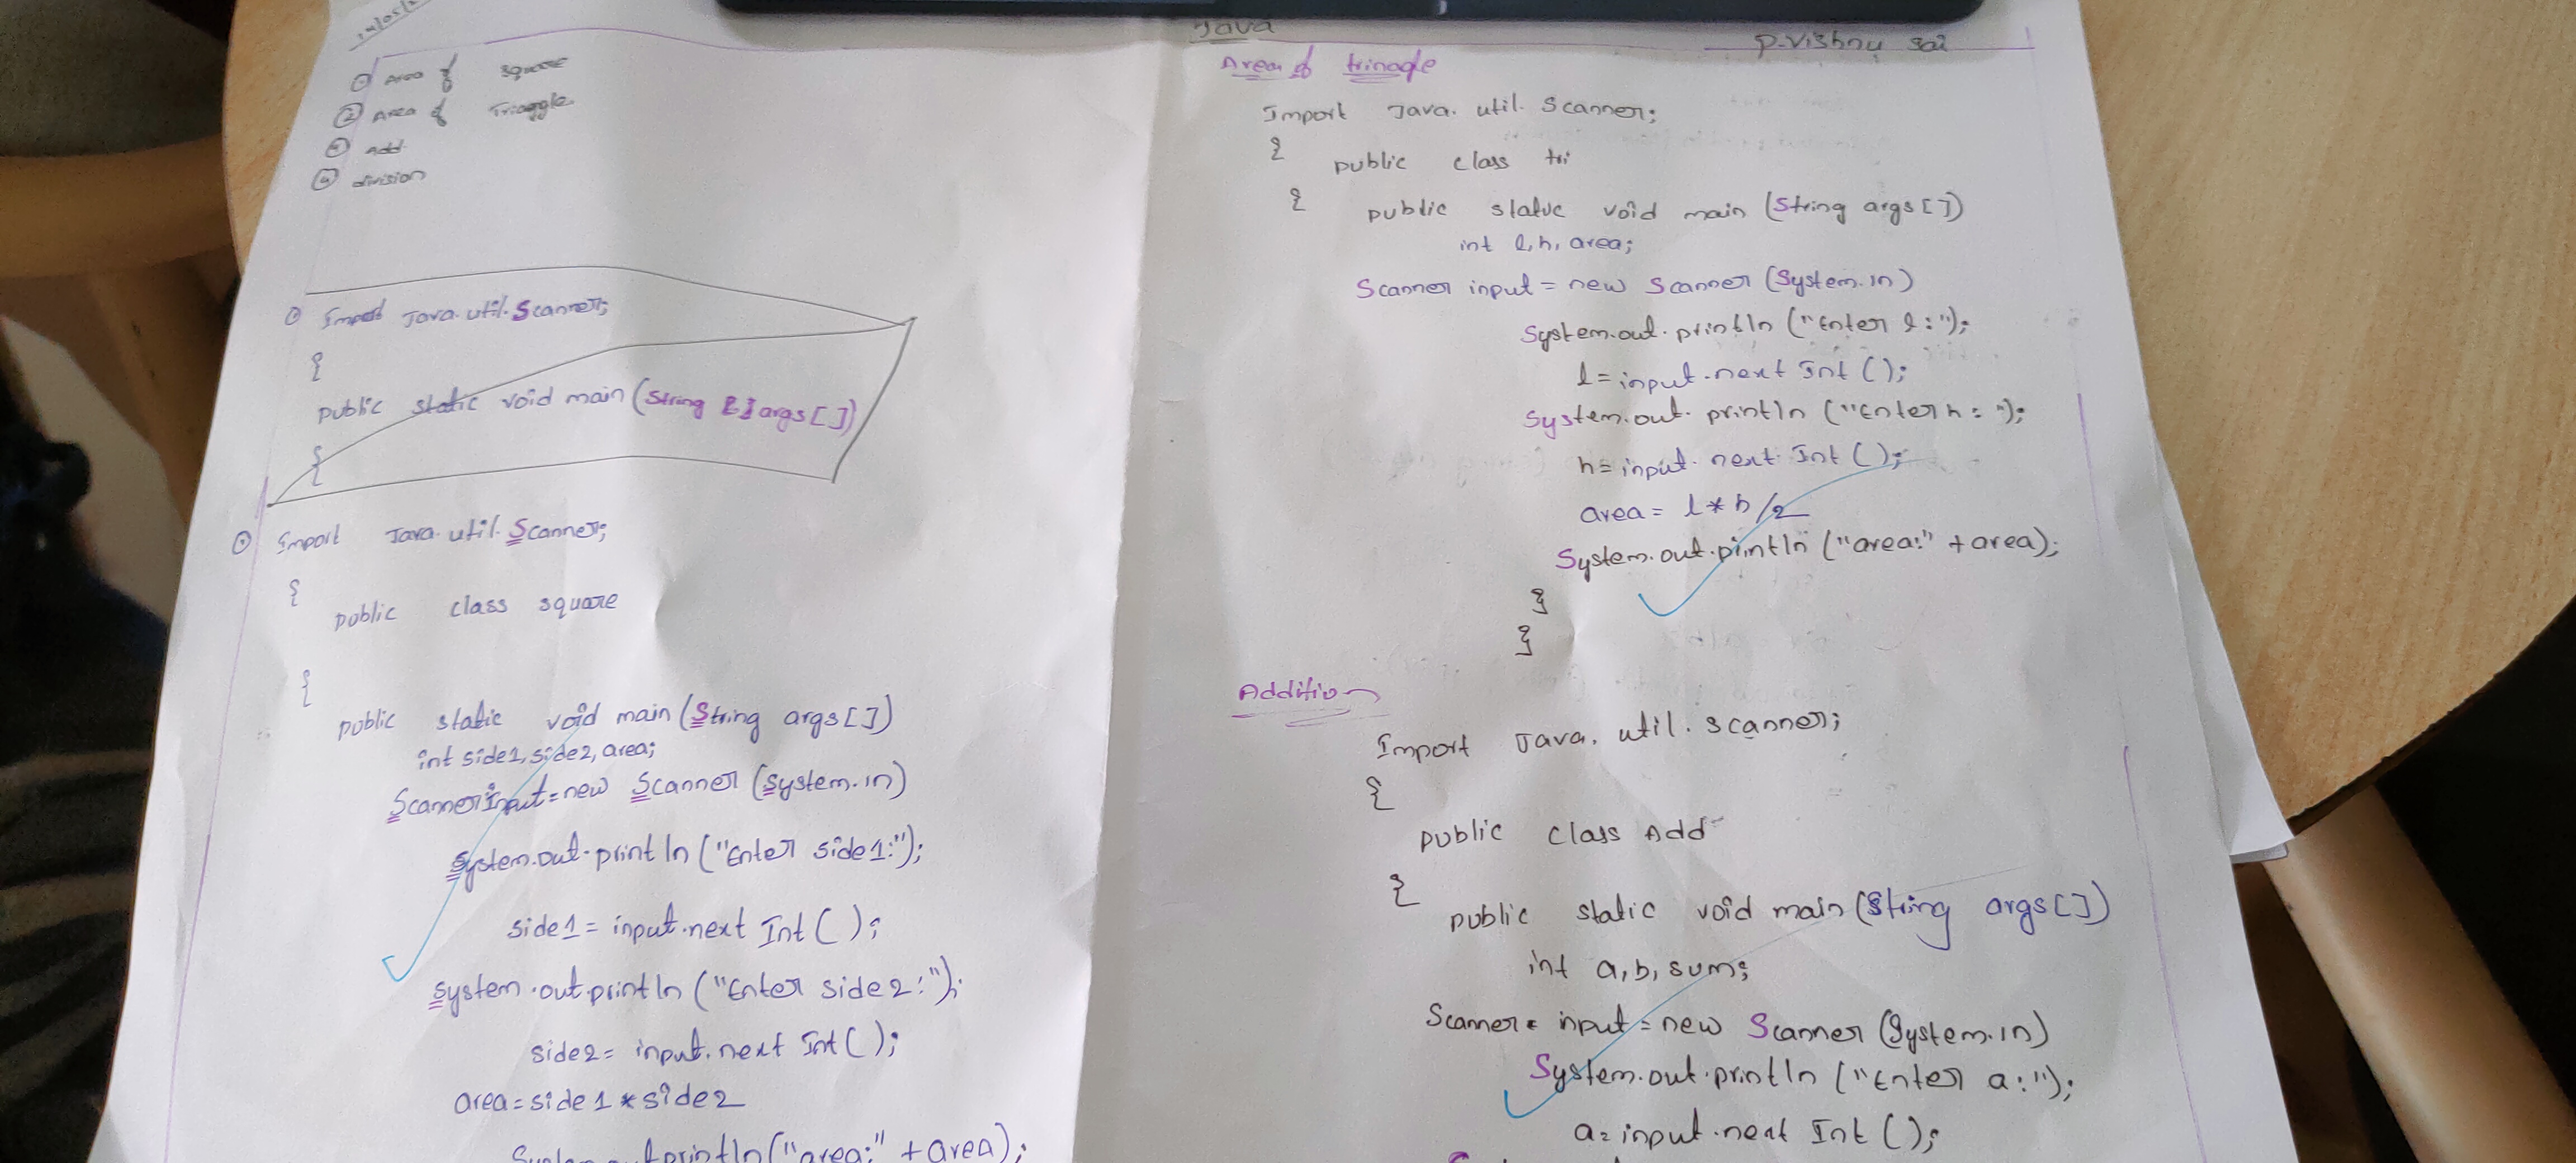 ① Area of square
② Area of Triaggle
③ Add
④ division
① Import Java.util.Scanner;
{
public static void main (String [] args [])
{
① Import Java.util.Scanner;
{
public class square
{
public static void main (String args [])
int side1, side2, area;
Scanner Input = new Scanner (System.in)
System.out.println ("Enter side1:");
side1 = input.next Int ( );
System.out.println ("Enter side2:");
side2 = input.next Int ( );
area = side1 * side2
System.out.println ("area:" + area);
Java
P-Vishnu sai
Area of trinagle
Import Java.util.Scanner;
{
public class tri
{
public static void main (String args [])
int l, h, area;
Scanner input = new Scanner (System.in)
System.out.println ("Enter l:");
l = input.next Int ( );
System.out.println ("Enter h:");
h = input.next Int ( );
area = l * h /2
System.out.println ("area:" + area);
}
}
Addition
Import Java.util.scanner;
{
public class Add
{
public static void main (String args [])
int a, b, sum;
Scanner = input = new Scanner (System.in)
System.out.println ("Enter a:");
a = input.next Int ( );